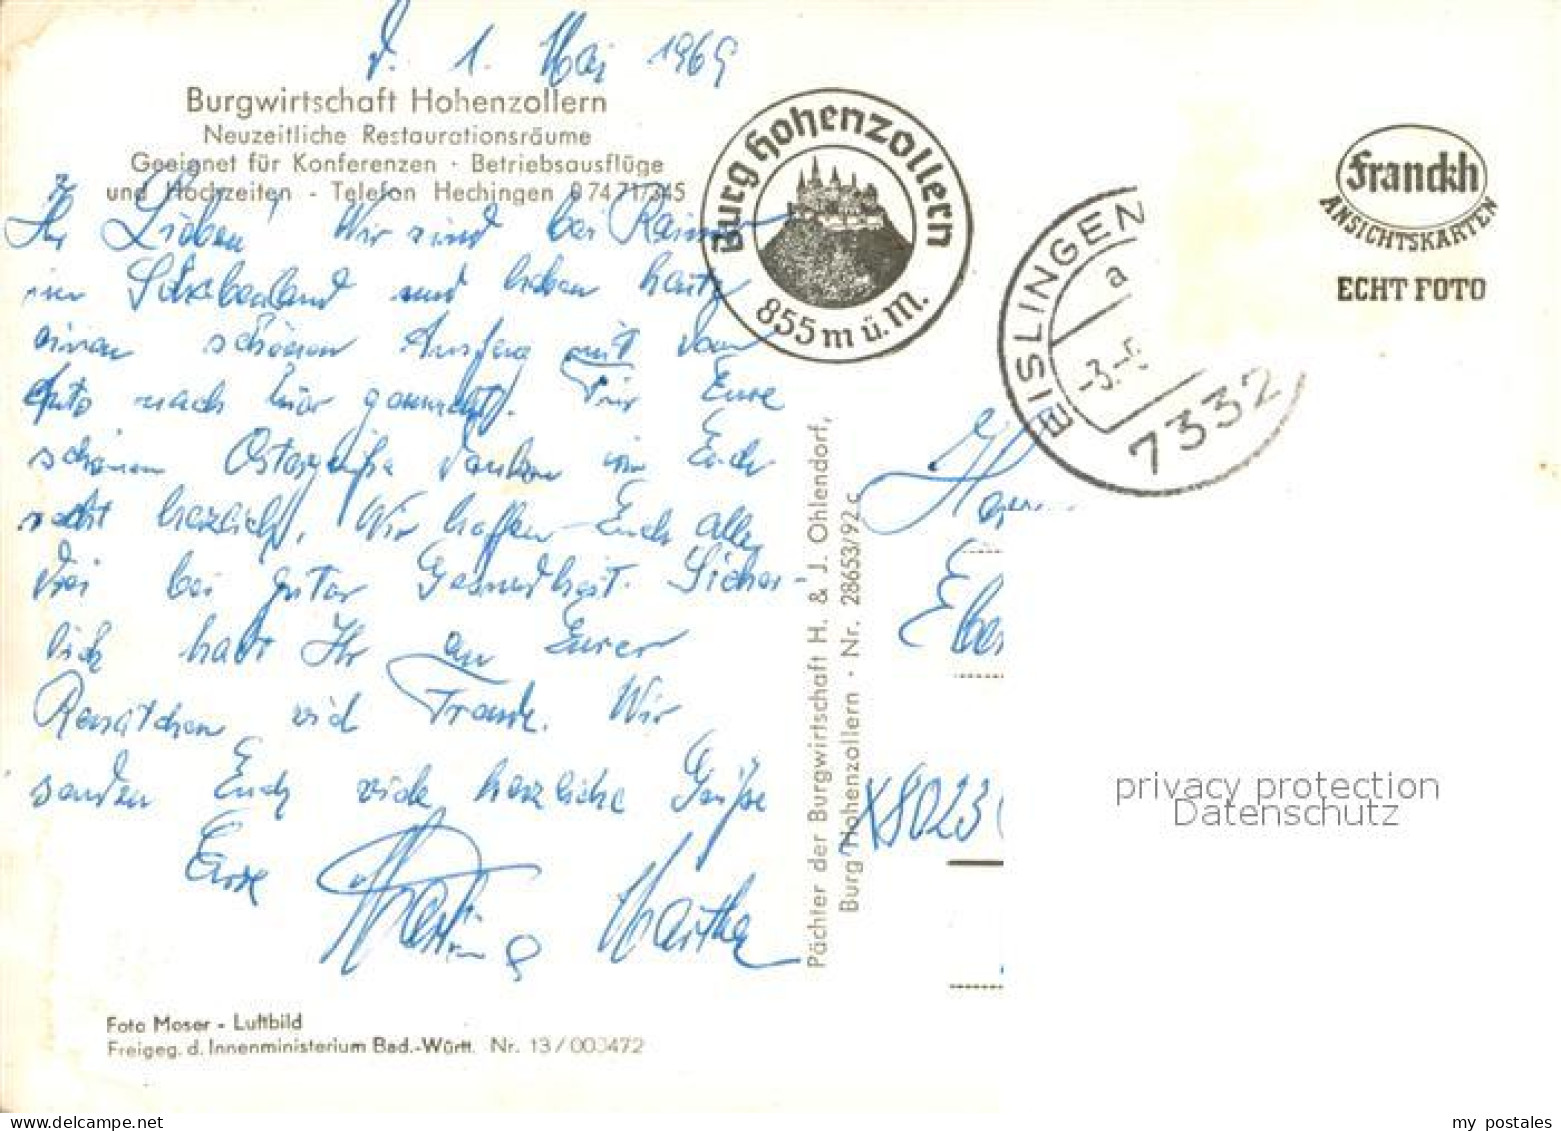 d. 1. Mai 1969
Burgwirtschaft Hohenzollern
Neuzeitliche Restaurationsräume
Geeignet für Konferenzen · Betriebsausflüge
und Hochzeiten - Telefon Hechingen 0 74 71/345
Ihr Lieben! Wir sind bei Rainer
im Schwabenland und haben heute
einen schönen Ausflug mit dem
Auto nach hier gemacht. Für Eure
schönen Ostergrüße danken wir Euch
recht herzlich. Wir hoffen Euch alle
drei bei guter Gesundheit. Sicher-
lich habt Ihr an Eurer
viel Freude. Wir
senden Euch viele herzliche Grüße
Eure
Martha
Foto Moser - Luftbild
Freigeg. d. Innenministerium Bad.-Württ. Nr. 13/003472
Burg Hohenzollern
855 m ü. M.
Pächter der Burgwirtschaft H. & J. Ohlendorf,
Burg Hohenzollern · Nr. 28653/92 c
EISLINGEN
a
-3.-5
7332
Franckh
ANSICHTSKARTEN
ECHT FOTO
X8023
privacy protection
Datenschutz
my postales